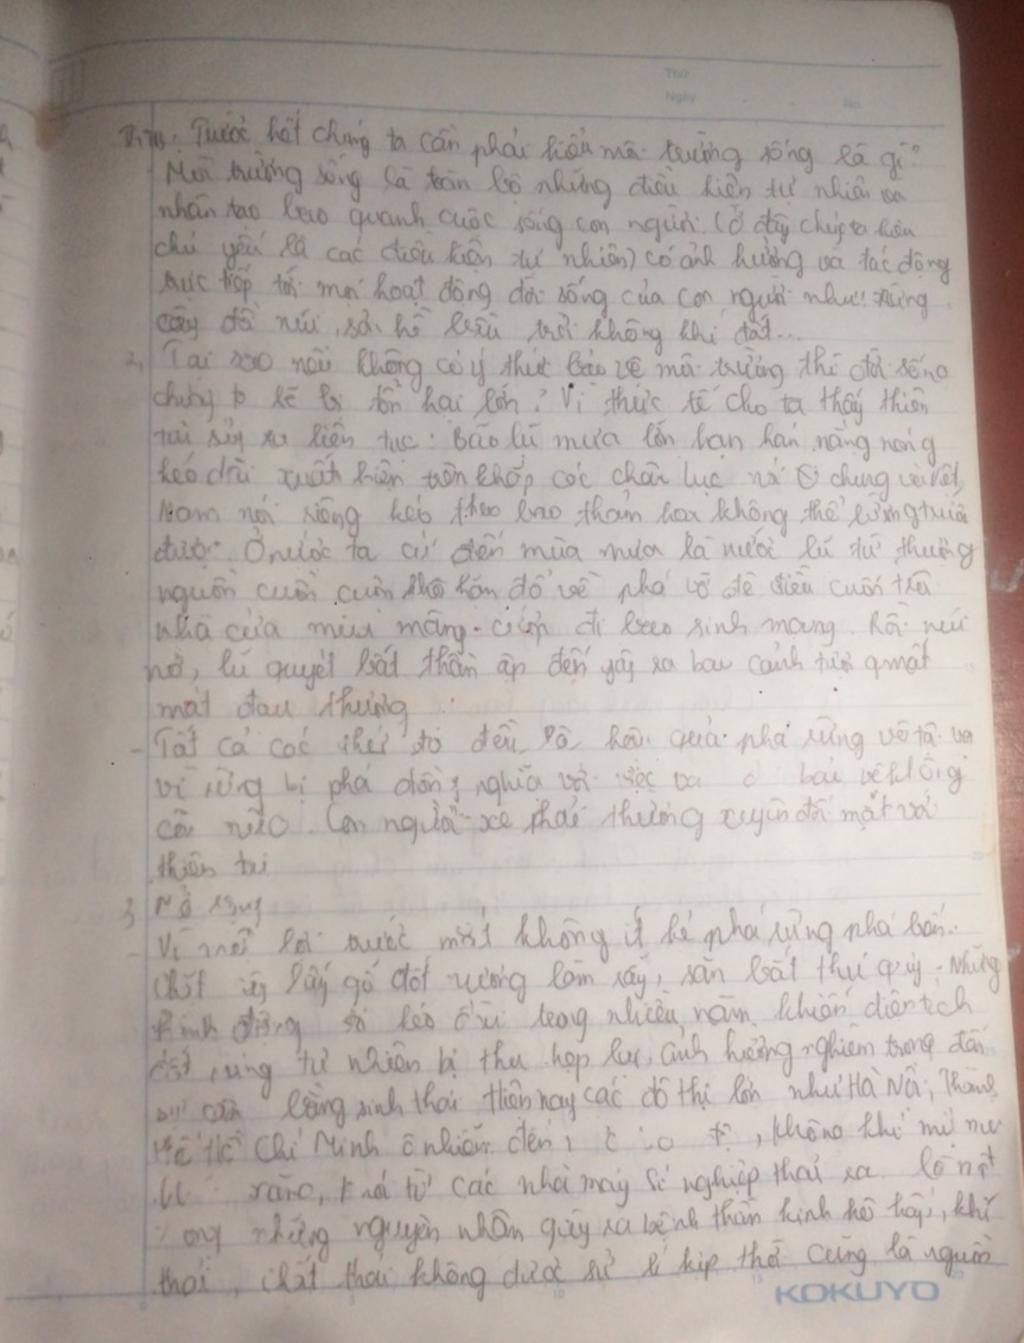 Thứ
Ngày No.
Trước hết chúng ta cần phải hiểu môi trường sống là gì?
Môi trường sống là toàn bộ những điều kiện tự nhiên và
nhân tạo bao quanh cuộc sống con người (ở đây chúng ta hiểu
chủ yếu là các điều kiện tự nhiên) có ảnh hưởng và tác động
trực tiếp tới mọi hoạt động đời sống của con người như: rừng
cây đồi núi, sông hồ bầu trời không khí đất...
2, Tại sao nói không có ý thức bảo vệ môi trường thì đời sống
chúng ta sẽ bị tổn hại lớn? Vì thực tế cho ta thấy thiên
tai xảy ra liên tục: Bão lũ mưa lớn hạn hán nắng nóng
kéo dài xuất hiện trên khắp các châu lục nói chung và Việt
Nam nói riêng kéo theo bao thảm họa không thể lường trước
được. Ở nước ta cứ đến mùa mưa là nước lũ từ thượng
nguồn cuồn cuộn đổ về phá vỡ đê điều cuốn trôi
nhà cửa mùa màng. cướp đi bao sinh mạng. Rồi núi
nở, lũ quyét bất thần ập đến gây ra bao cảnh mất
mát đau thương
- Tất cả các thứ đó đều là hậu quả phá rừng vô tội vạ
vì rừng bị phá đồng nghĩa với việc không
còn nữa. Con người sẽ phải thường xuyên đối mặt với
thiên tai
3, Mở rộng
- Vì mối lợi trước mắt không ít kẻ phá rừng phá bán.
Chặt cây lấy gỗ đốt nương làm rẫy, săn bắt thú quý. Những
hành động đó kéo dài trong nhiều năm khiến diện tích
đất rừng tự nhiên bị thu hẹp lại, ảnh hưởng nghiêm trọng đến
sự cân bằng sinh thái. Hiện nay các đô thị lớn như Hà Nội, Thành
Hồ Chí Minh ô nhiễm đến, không khí mù mịt
khói từ các nhà máy xí nghiệp thải ra là một
trong những nguyên nhân gây ra bệnh thần kinh hô hấp, khí
thải, chất thải không được xử lí kịp thời cũng là nguồn
KOKUYO